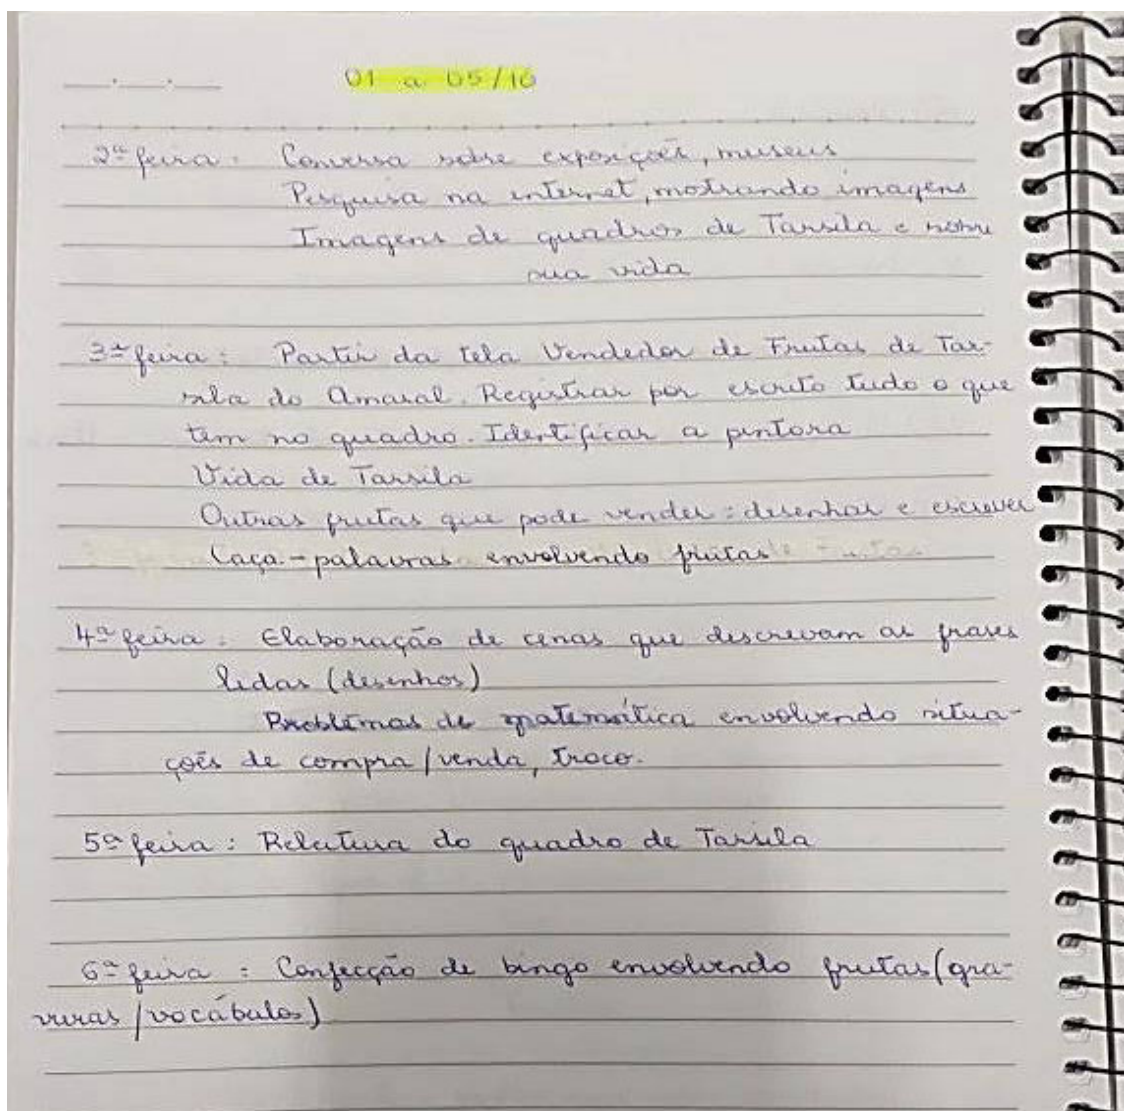 01 a 05/10
2ª feira: Conversa sobre exposições, museus
Pesquisa na internet, mostrando imagens
Imagens de quadros de Tarsila e sobre
sua vida
3ª feira: Partir da tela Vendedor de Frutas de Tar-
sila do Amaral. Registrar por escrito tudo o que
tem no quadro. Identificar a pintora
Vida de Tarsila
Outras frutas que pode vender: desenhar e escrever
Caça-palavras envolvendo frutas
4ª feira: Elaboração de cenas que descrevam as frases
lidas (desenhos)
Problemas de matemática envolvendo situa-
ções de compra/venda, troco.
5ª feira: Releitura do quadro de Tarsila
6ª feira: Confecção de bingo envolvendo frutas (gra-
vuras/vocábulos)